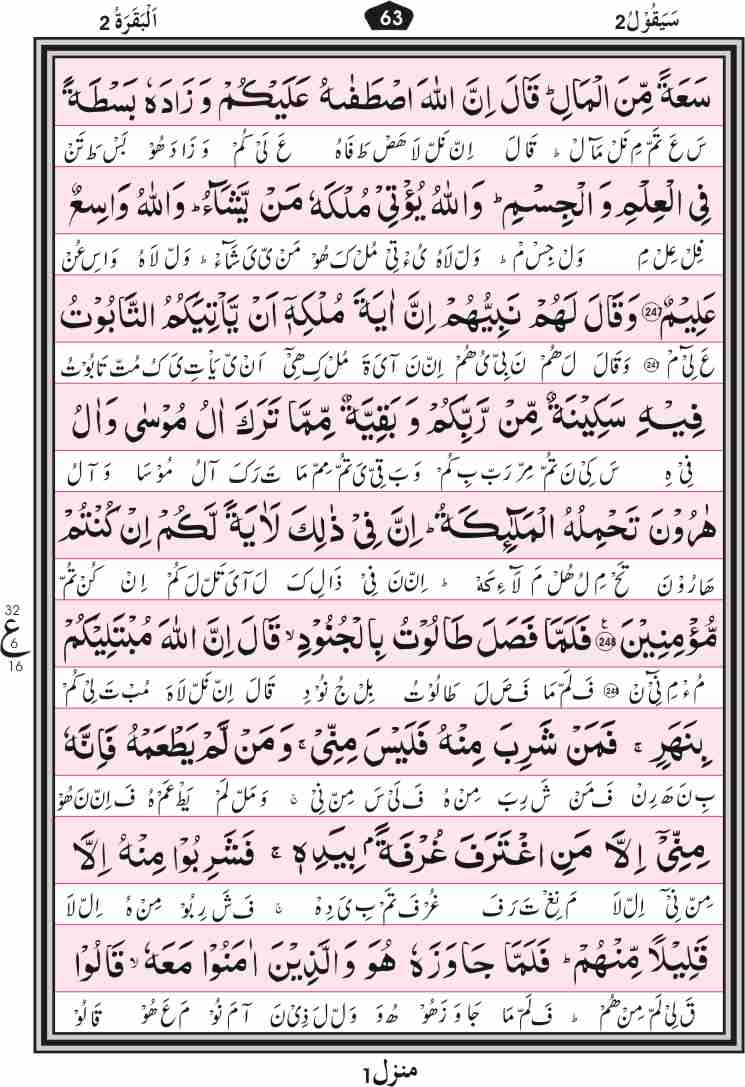 سَيَقُوْلُ2 63 اَلْبَقَرَةُ 2
سَعَةً مِّنَ الْمَالِ ؕ قَالَ اِنَّ اللّٰهَ اصْطَفٰىهُ عَلَيْكُمْ وَ زَادَهٗ بَسْطَةً
سَ عَ تَمّ مِ نَل مَآل ؕ قَالَ اِنّ نَلّ لَا هَصْ طَ فَاهُ عَ لَىْ كُمْ وَ زَا دَ هُوْ بَسْ طَ تَنْ
فِى الْعِلْمِ وَ الْجِسْمِ ؕ وَاللّٰهُ يُؤْتِىْ مُلْكَهٗ مَنْ يَّشَآءُ ؕ وَاللّٰهُ وَاسِعٌ
فِلْ عِلْ مِ وَلْ جِسْمْ ؕ وَلّ لَاهُ يُءْ تِىْ مُلْ كَ هُوْ مَنْ ىّ يَ شَآءْ ؕ وَلّ لَاهُ وَاسِ عُنْ
عَلِيْمٌ ﴿247﴾ وَقَالَ لَهُمْ نَبِيُّهُمْ اِنَّ اٰيَةَ مُلْكِهٖۤ اَنْ يَّاْتِيَكُمُ التَّابُوْتُ
عَ لِىْٓ مْ ﴿247﴾ وَ قَالَ لَ هُمْ نَ بِىّ ىُ هُمْ اِنّ نَ آ ىَ ةَ مُلْ كِ هِىْٓ اَنْ ىّ يَاْ تِ ىَ كُ مُتّ تَا بُوْتُ
فِيْهِ سَكِيْنَةٌ مِّنْ رَّبِّكُمْ وَ بَقِيَّةٌ مِّمَّا تَرَكَ اٰلُ مُوْسٰى وَاٰلُ
فِىْ هِ سَ كِىْ نَ تُمّ مِرّ رَبّ بِ كُمْ وَ بَ قِىّ ىَ تُمّ مِمّ مَا تَ رَكَ آلُ مُوْسَا وَ آلُ
هٰرُوْنَ تَحْمِلُهُ الْمَلٰٓئِكَةُ ؕ اِنَّ فِىْ ذٰلِكَ لَاٰيَةً لَّكُمْ اِنْ كُنْتُمْ
هَا رُوْنَ تَحْ مِ لُ هُلْ مَ لَآءِ كَهْ ؕ اِنّ نَ فِىْ ذَالِ كَ لَ آ ىَ تَلّ لَ كُمْ اِنْ كُنْ تُمّْ
مُّؤْمِنِيْنَ ﴿248﴾ فَلَمَّا فَصَلَ طَالُوْتُ بِالْجُنُوْدِ ۙ قَالَ اِنَّ اللّٰهَ مُبْتَلِيْكُمْ
مُ ءْ مِ نِىْٓ نْ ﴿248﴾ فَ لَمّ مَا فَ صَ لَ طَا لُوْتُ بِلْ جُ نُوْدِ قَالَ اِنّ نَلّ لَاهَ مُبْ تَ لِىْ كُمْ
بِنَهَرٍ ۚ فَمَنْ شَرِبَ مِنْهُ فَلَيْسَ مِنِّىْ ۚ وَ مَنْ لَّمْ يَطْعَمْهُ فَاِنَّهٗ
بِ نَ هَ رِنْ فَ مَنْ شَ رِبَ مِنْ هُ فَ لَىْ سَ مِنّ نِىْ ۚ وَ مَلّ لَمْ يَطْ عَمْ هُ فَ اِنّ نَ هُوْ
مِنِّىْۤ اِلَّا مَنِ اغْتَرَفَ غُرْفَةًۢ بِيَدِهٖ ۚ فَشَرِبُوْا مِنْهُ اِلَّا
مِنّ نِىْٓ اِلّ لَا مَ نِغْ تَ رَ فَ غُرْ فَ تَمْ بِ ىَ دِهْ ۚ فَ شَ رِ بُوْ مِنْ هُ اِلّ لَا
قَلِيْلًا مِّنْهُمْ ؕ فَلَمَّا جَاوَزَهٗ هُوَ وَالَّذِيْنَ اٰمَنُوْا مَعَهٗ ۙ قَالُوْا
قَ لِىْ لَمّ مِنْ هُمْ ؕ فَ لَمّ مَا جَا وَ زَهُوْ هُوَ وَلّ لَ ذِىْ نَ آ مَ نُوْ مَ عَ هُوْ قَا لُوْ
32
ع
6
16
منزل1